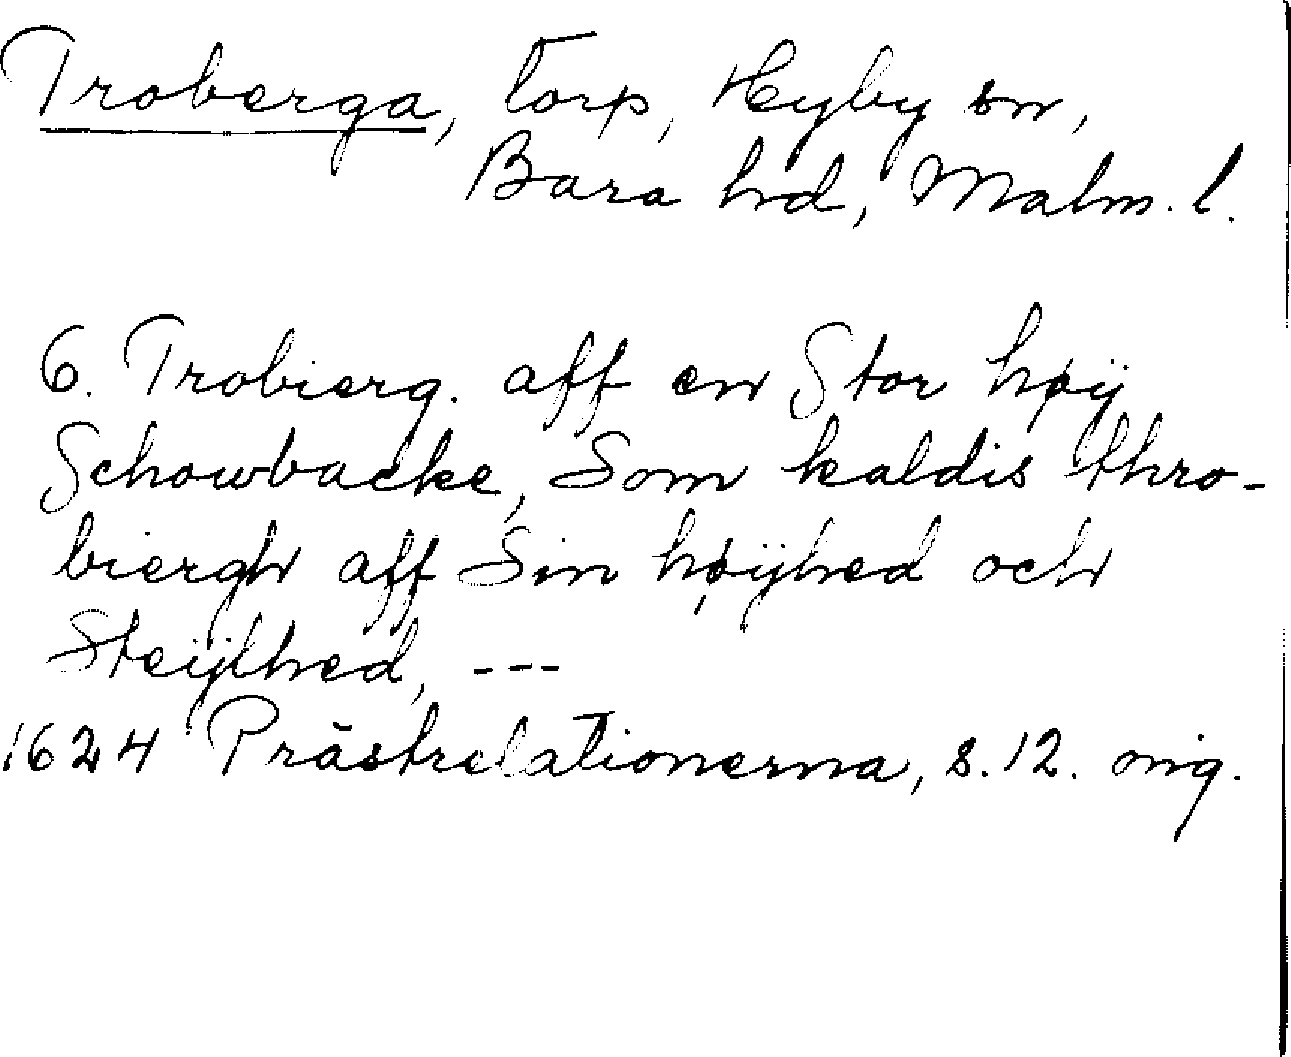 Troberga, torp, Hyby sn,
Bara hd, Malm. l.
6. Trobierg. aff en Stor høÿ
Schowbacke, Som kaldis thro-
biergh aff Sin høÿhed och
Steÿlhed, ---
1624 Prästrelationerna, s. 12. orig.